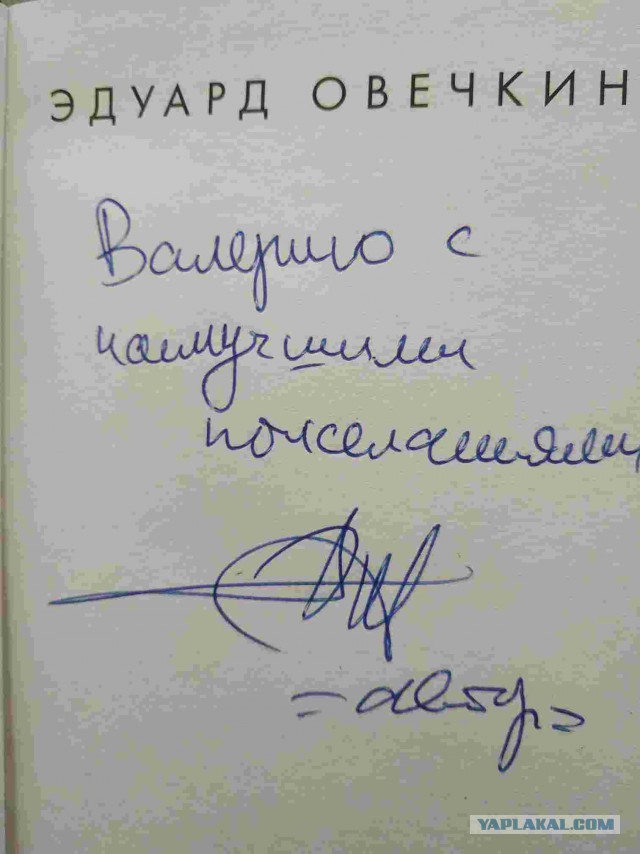 ЭДУАРД ОВЕЧКИН
Валерию с
наилучшими
пожеланиями
=автор=
YAPLAKAL.COM